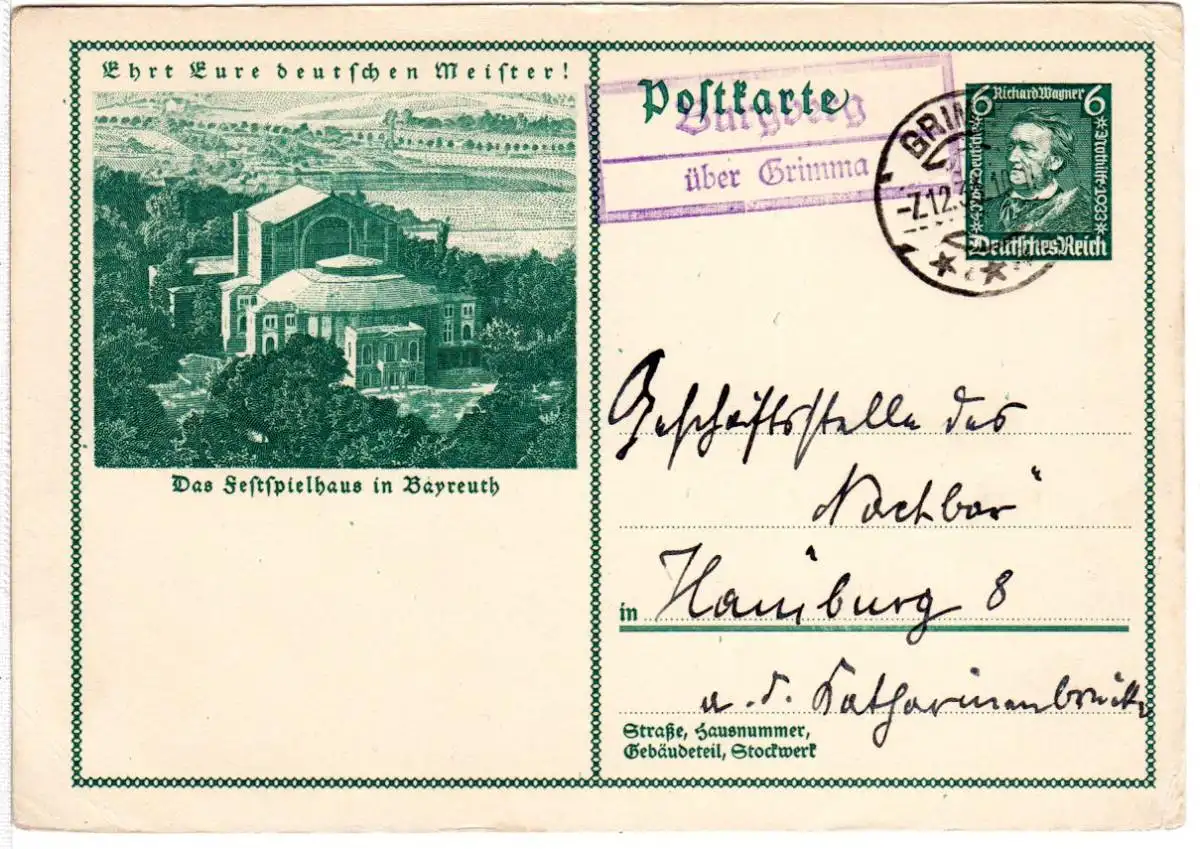 Ehrt Eure deutschen Meister!
Das Festspielhaus in Bayreuth
Postkarte
Burgberg
über Grimma
GRIM
-7.12.3
6 Richard Wagner 6
Deutsches Reich
Geschäftsstelle des
„Nachbar“
in Hamburg 8
a. d. Katharinenbrücke
Straße, Hausnummer,
Gebäudeteil, Stockwerk